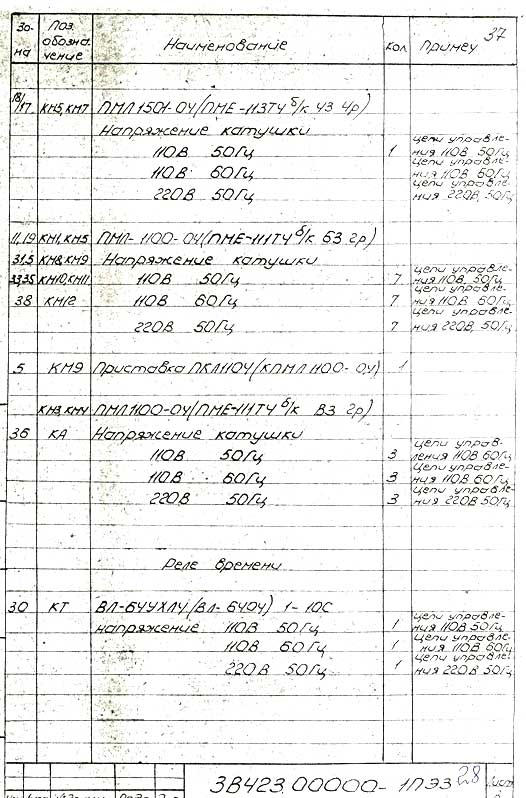 37
Зо-на Поз. обозна-чение Наименование Кол Примеч
18/17 КМ5, КМ7 ПМЛ 1501-04 (ПМЕ-113ТЧ б/к 43 4р)
Напряжение катушки
110В 50Гц 1 цепи управле-ния 110В 50Гц
110В 60Гц Цепи управле-ния 110В 60Гц
220В 50Гц Цепи управле-ния 220В, 50Гц
11,19 КМ1, КМ5 ПМЛ-1100-04 (ПМЕ-111ТЧ б/к 63 2р)
31,5 КМ8, КМ9 Напряжение катушки
33,35 КМ10, КМ11 110В 50Гц 7 цепи управле-ния 110В, 50Гц
38 КМ12 110В 60Гц 7 цепи управле-ния 110В, 60Гц
220В 50Гц 7 цепи управле-ния 220В, 50Гц
5 КМ9 Приставка ПКЛ1104 (КПМЛ 1100-04) 1
КМ3, КМ4 ПМЛ1100-04 (ПМЕ-111ТЧ б/к В3 2р)
36 КА Напряжение катушки
110В 50Гц 3 цепи управ-ления 110В 60Гц
110В 60Гц 3 Цепи управле-ния 110В 60Гц
220В 50Гц 3 Цепи управле-ния 220В 50Гц
Реле времени
30 КТ ВЛ-64УХЛ4 (ВЛ-6404) 1-10С
напряжение 110В 50Гц 1 цепи управле-ния 110В 50Гц
110В 60Гц 1 цепи управле-ния 110В 60Гц
220В 50Гц 1 цепи управле-ния 220В 50Гц
3В423.00000-1ПЭ3 28 Лист